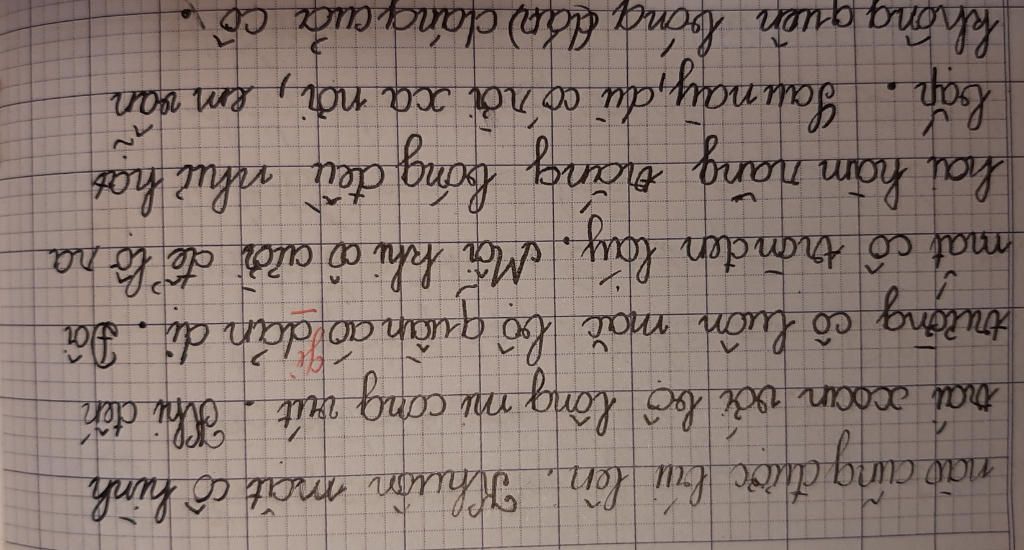 nào cũng được búi lên. Khuôn mặt cô hình
trái xoan với bộ lông mi cong vút. Khi đến
trường cô luôn mặc bộ quần áo dản dị. Đôi
gi
mắt cô tròn đen láy. Mỗi khi cô cười để lộ ra
hai hàm răng trắng bóng đều như
bắp. Sau này, dù có rời xa nơi, em vẫn
không quên bóng (dán) dáng của cô.